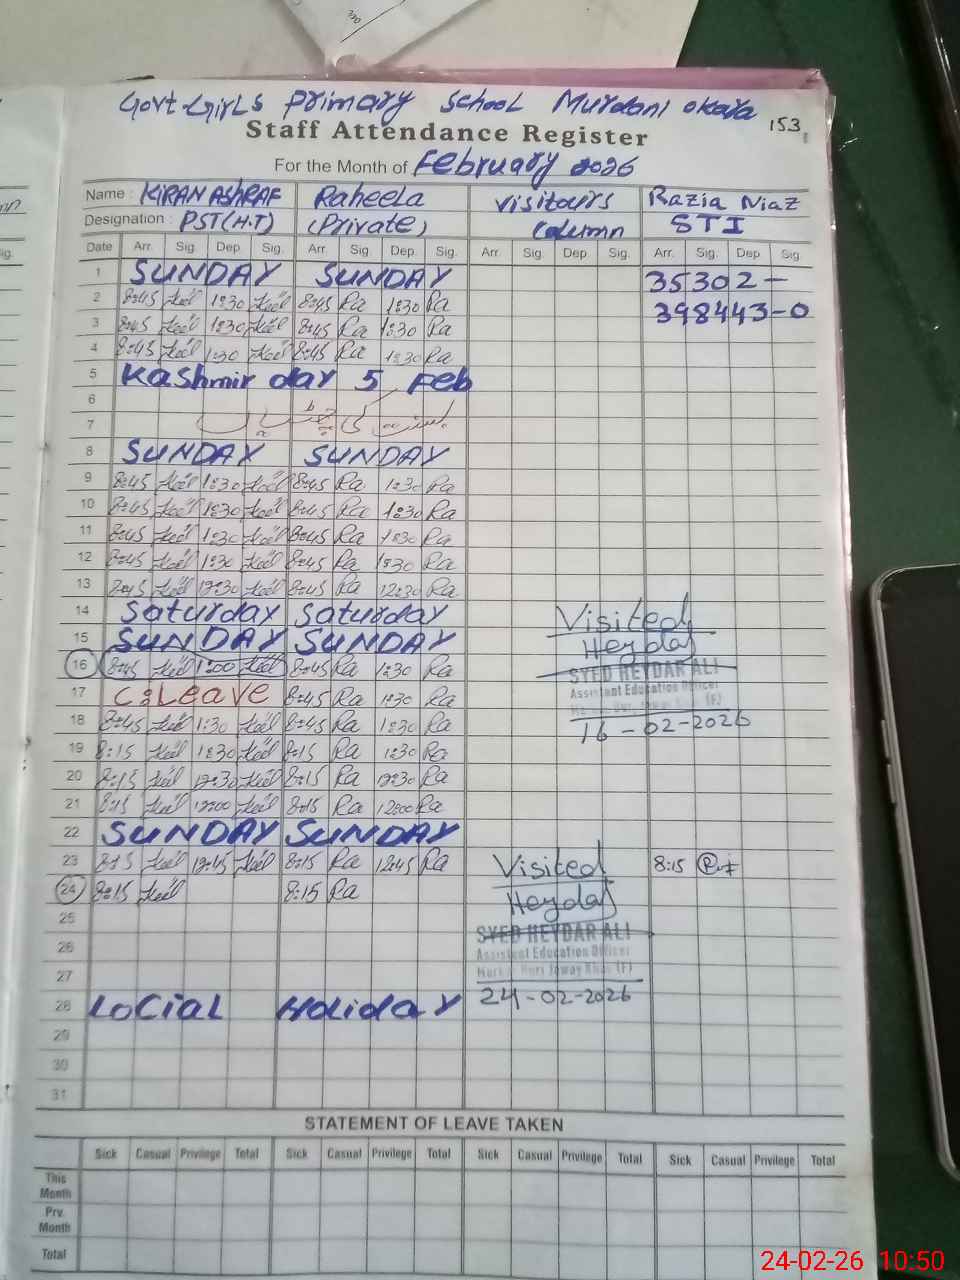 Govt. Girls Primary School Murdani Okara
153
Staff Attendance Register
For the Month of February 2026
Name : KIRAN ASHRAF Raheela Visitours Razia Niaz
Designation : PST(H.T) (Private) Column STI
Date Arr. Sig. Dep. Sig. Arr. Sig. Dep. Sig. Arr. Sig. Dep Sig. Arr. Sig. Dep Sig
1 SUNDAY SUNDAY 35302-
2 8:45 1:30 8:45 Ra 1:30 Ra 398443-0
3 8:45 1:30 8:45 Ra 1:30 Ra
4 8:45 1:30 8:45 Ra 1:30 Ra
5 Kashmir day 5 Feb
6
7
8 SUNDAY SUNDAY
9 8:45 1:30 8:45 Ra 1:30 Ra
10 8:45 1:30 8:45 Ra 1:30 Ra
11 8:45 1:30 8:45 Ra 1:30 Ra
12 8:45 1:30 8:45 Ra 1:30 Ra
13 8:45 12:30 8:45 Ra 12:30 Ra
14 Saturday Saturday Visited
15 SUNDAY SUNDAY Heydar
16 8:45 1:00 8:45 Ra 1:30 Ra SYED HEYDAR ALI
17 C.Leave 8:45 Ra 1:30 Ra Assistant Education Officer
18 8:45 1:30 8:45 Ra 1:30 Ra 16-02-2026
19 8:15 1:30 8:15 Ra 1:30 Ra
20 8:15 12:30 8:15 Ra 12:30 Ra
21 8:15 12:00 8:15 Ra 12:00 Ra
22 SUNDAY SUNDAY
23 8:15 12:45 8:15 Ra 12:45 Ra Visited 8:15
24 8:15 8:15 Ra Heydar
25
26 SYED HEYDAR ALI
Assistant Education Officer
27
28 LoCial Holiday 24-02-2026
29
30
31
STATEMENT OF LEAVE TAKEN
Sick Casual Privilege Total Sick Casual Privilege Total Sick Casual Privilege Total Sick Casual Privilege Total
This Month
Prv. Month
Total
24-02-26 10:50